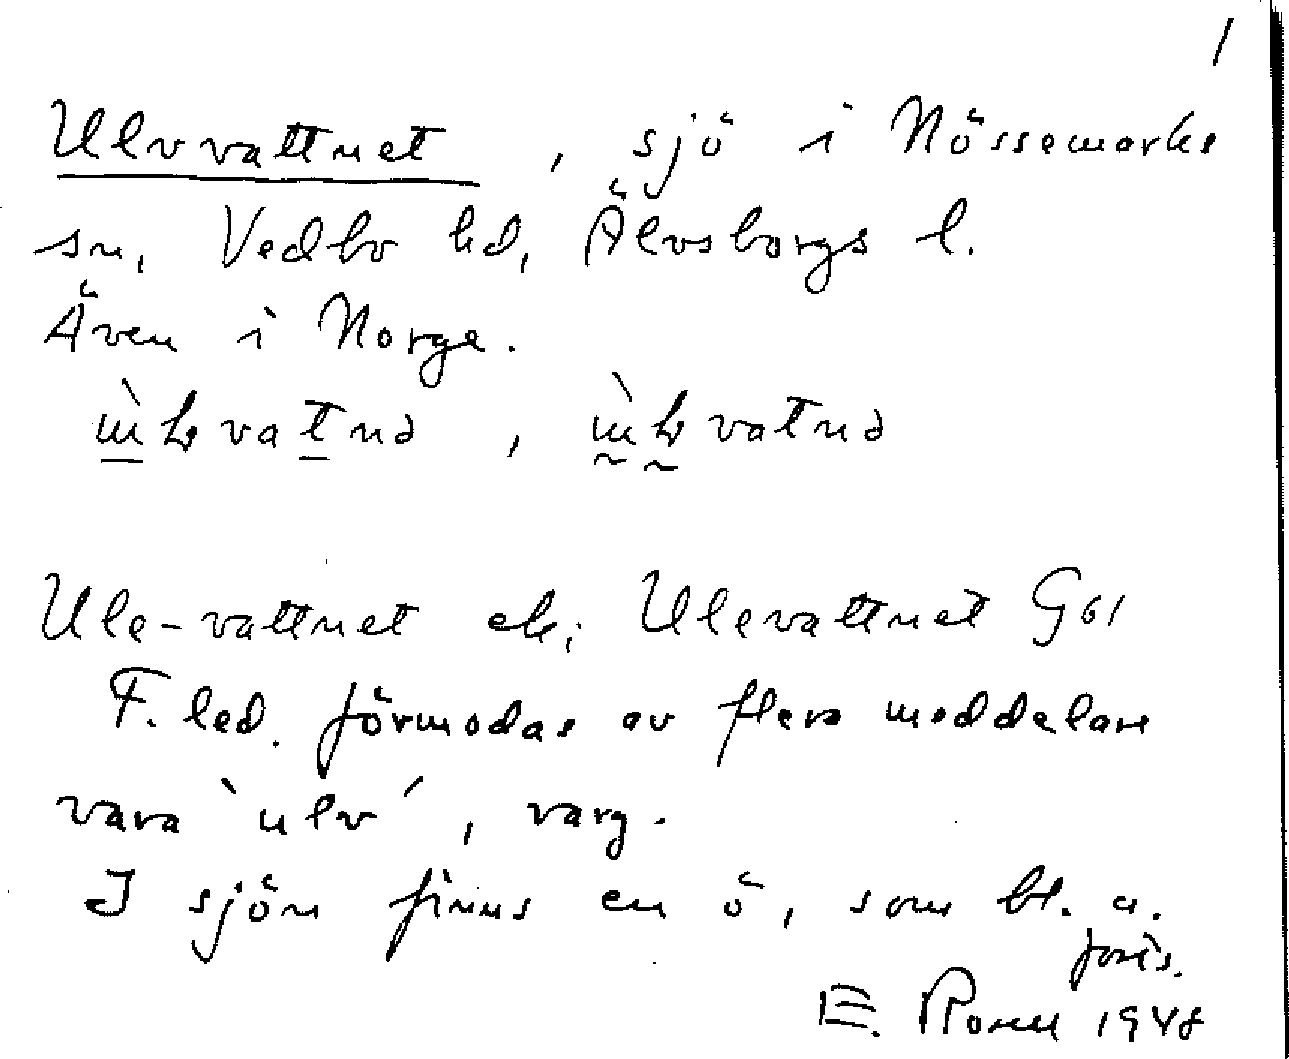 1
Ulvvattnet, sjö i Nössemarks
sn, Vedbo hd, Älvsborgs l.
Även i Norge.
Ule-vattnet ek; Ulevattnet G61
F. led. förmodas av flera meddelare
vara `ulv´, varg.
I sjön finns en ö, som bl. a.
forts.
E. 1948